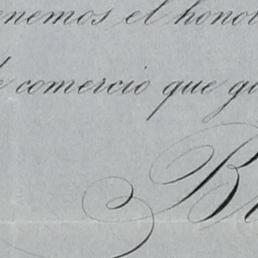 enemos el hono
de comercio que g
B